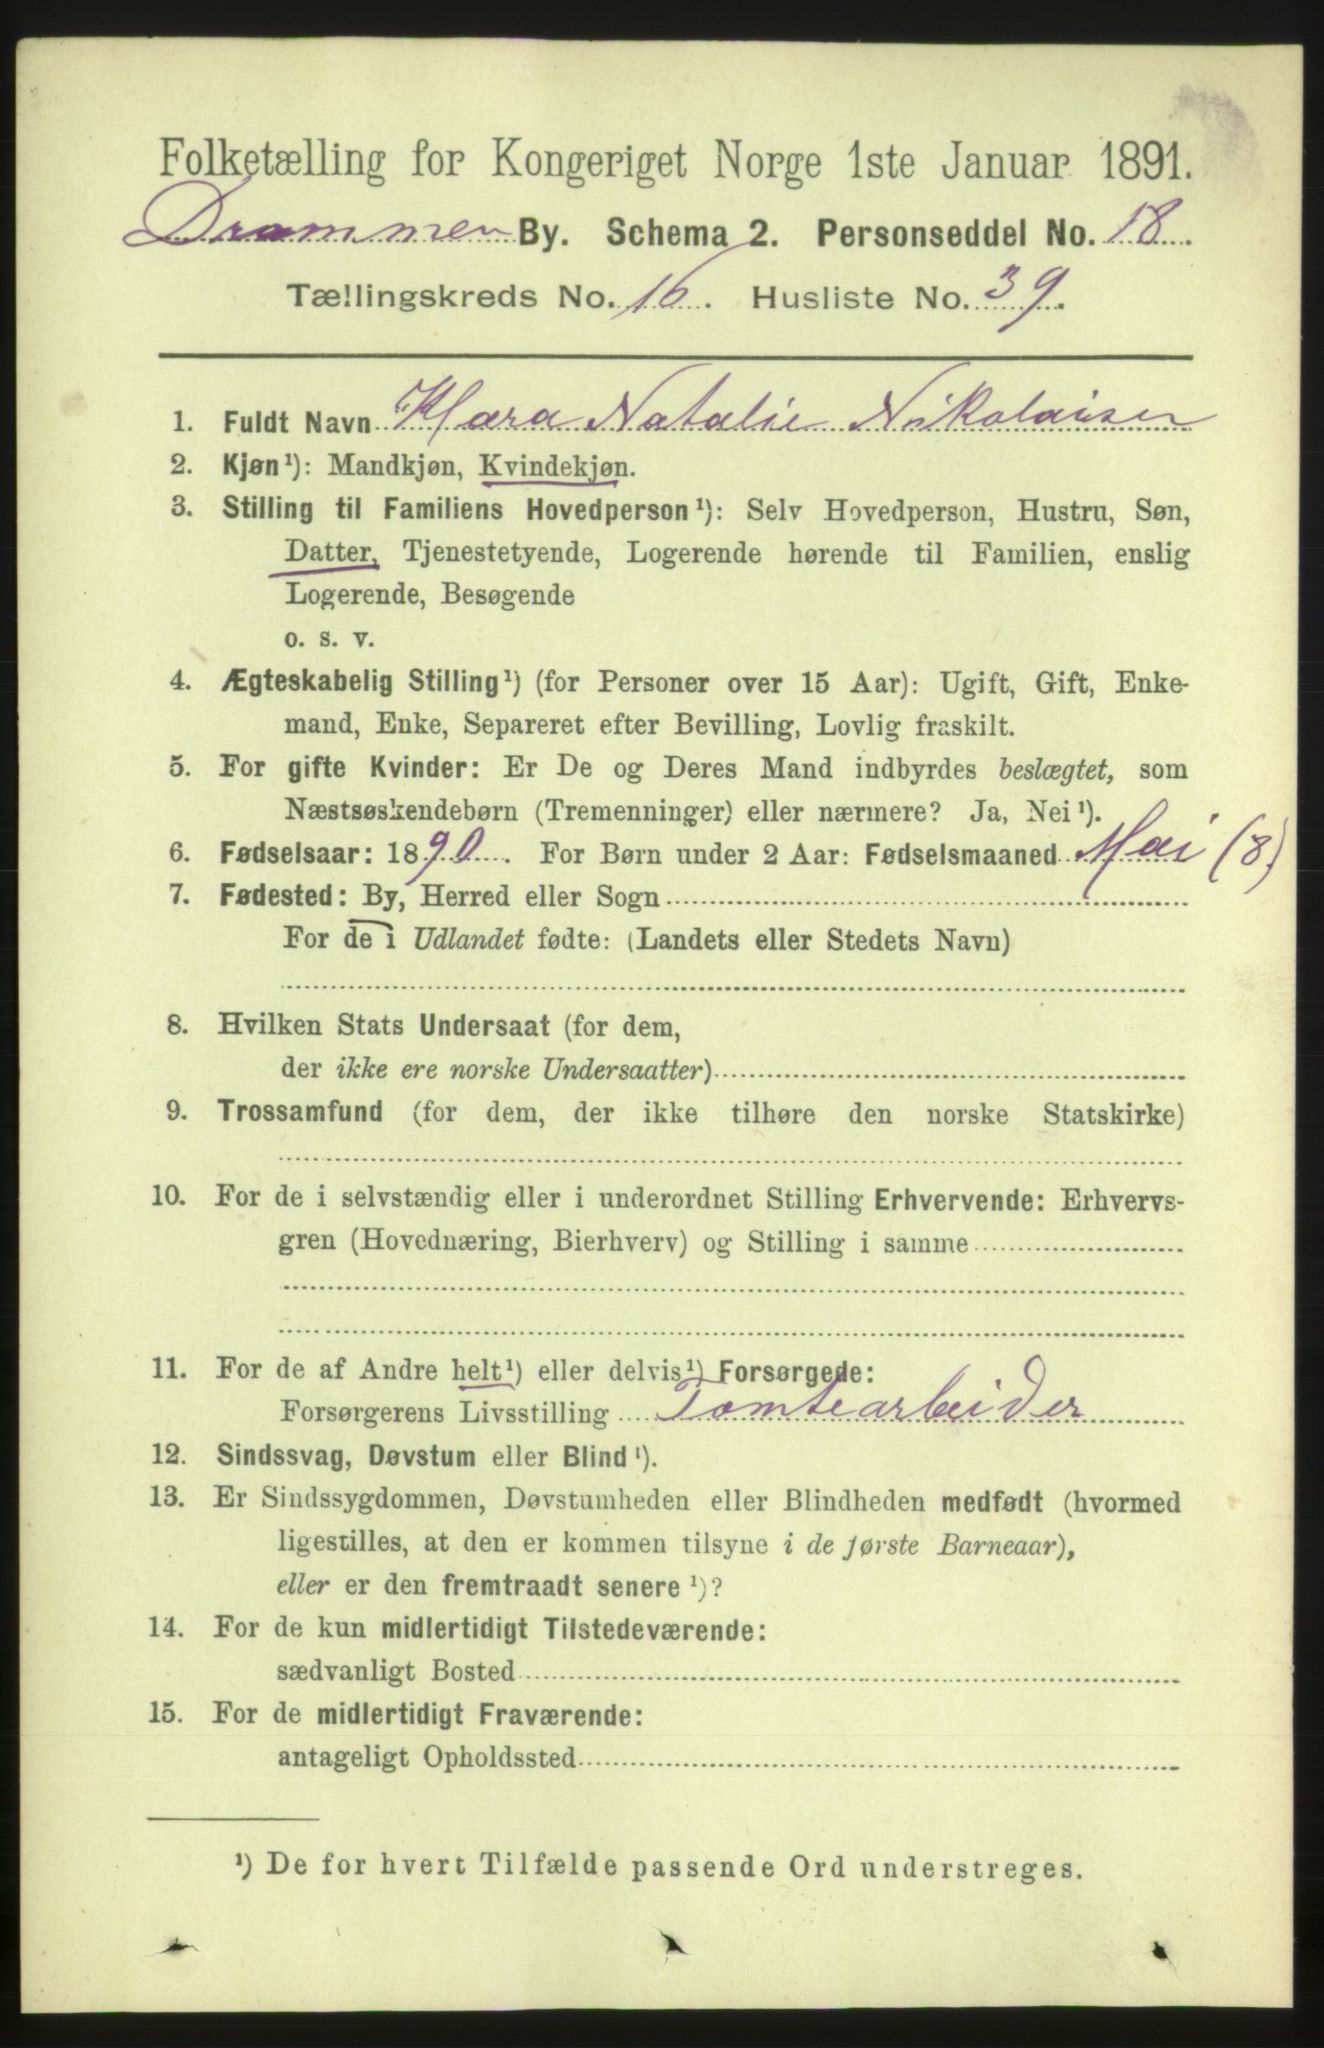 Folketælling for Kongeriget Norge 1ste Januar 1891.
Drammen By. Schema 2. Personseddel No. 18.
Tællingskreds No. 16. Husliste No. 39.
1. Fuldt Navn Klara Natalie Nikolaisen
2. Kjøn¹): Mandkjøn, Kvindekjøn.
3. Stilling til Familiens Hovedperson¹): Selv Hovedperson, Hustru, Søn,
Datter, Tjenestetyende, Logerende hørende til Familien, enslig
Logerende, Besøgende
o. s. v.
4. Ægteskabelig Stilling¹) (for Personer over 15 Aar): Ugift, Gift, Enke-
mand, Enke, Separeret efter Bevilling, Lovlig fraskilt.
5. For gifte Kvinder: Er De og Deres Mand indbyrdes beslægtet, som
Næstsøskendebørn (Tremenninger) eller nærmere? Ja, Nei¹).
6. Fødselsaar: 1890. For Børn under 2 Aar: Fødselsmaaned Mai (8)
7. Fødested: By, Herred eller Sogn
For de i Udlandet fødte: (Landets eller Stedets Navn)
8. Hvilken Stats Undersaat (for dem,
der ikke ere norske Undersaatter)
9. Trossamfund (for dem, der ikke tilhøre den norske Statskirke)
10. For de i selvstændig eller i underordnet Stilling Erhvervende: Erhvervs-
gren (Hovednæring, Bierhverv) og Stilling i samme
11. For de af Andre helt¹) eller delvis¹) Forsørgede:
Forsørgerens Livsstilling Tomtearbeider
12. Sindssvag, Døvstum eller Blind¹).
13. Er Sindssygdommen, Døvstumheden eller Blindheden medfødt (hvormed
ligestilles, at den er kommen tilsyne i de første Barneaar),
eller er den fremtraadt senere¹)?
14. For de kun midlertidigt Tilstedeværende:
sædvanligt Bosted
15. For de midlertidigt Fraværende:
antageligt Opholdssted
¹) De for hvert Tilfælde passende Ord understreges.